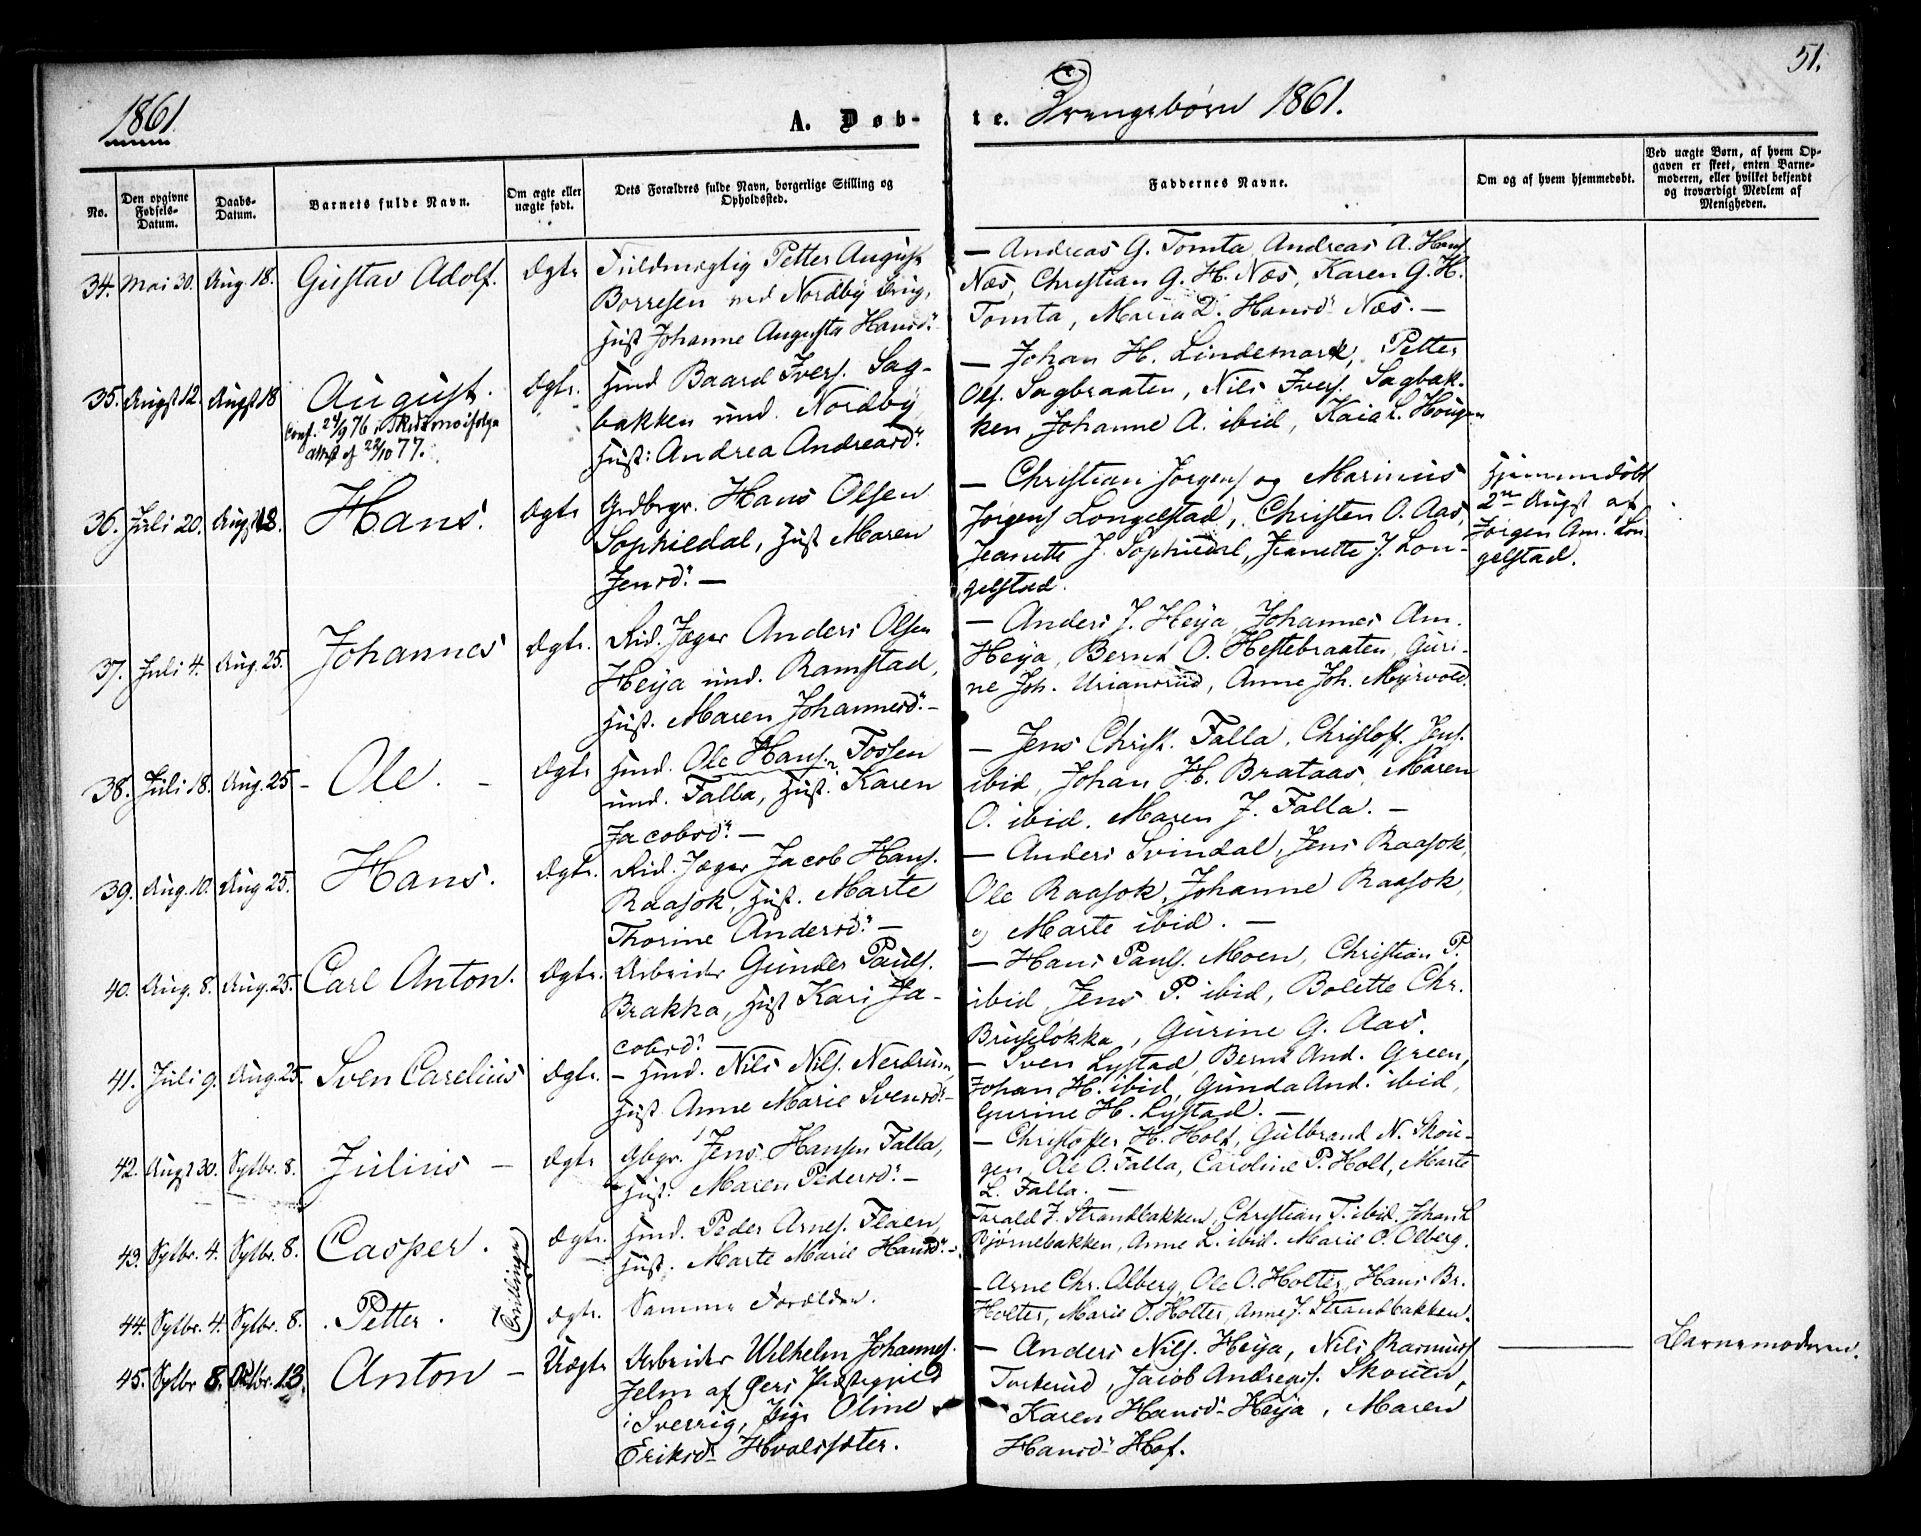 51.
1861
A. Døb-
te. Drengebørn 1861.
No.
Den opgivne Fødsels-Datum.
Daabs-Datum.
Barnets fulde Navn.
Om ægte eller uægte født.
Dets Forældres fulde Navn, borgerlige Stilling og Opholdssted.
Faddernes Navne.
Om og af hvem hjemmedøbt.
Ved uægte Børn, af hvem Opgaven er skeet, enten Barnemoderen, eller hvilket bekjendt og troværdigt Medlem af Menigheden.
34. Mai 30. Aug. 18. Gustav Adolf. Ægte
Fuldmægtig Petter August
Borresen ved Nordby Brug,
Hust Johanne Augusta Hansd:
— Andreas G. Tomta, Andreas A. Hans.
Næs, Christian G. H. Næs, Karen G. H.
Tomta, Maria D. Hansd: Næs. —
35. Augst 12. Augst 18 August. Ægte.
conf. 24/9 76 i Skedsmo ifølge
attest af 22/10 77.
Husmd Baard Ivers. Sag-
bakken und. Nordby
Hust: Andrea Andreasd:
— Johan H. Lindemark, Petter
Ols. Sagbraaten, Nils Ivers. Sagbak-
ken Johanne A. ibid, Kaia L. Hougen
36. Juli 20. Augst 18. Hans. Ægte
Grdbrgr. Hans Olsen
Sophiedal, Hust Maren
Jensd: —
— Christian Jørgens og Marinius
Jørgens Longelstad, Christen O. Aas,
Jeanette J. Sophiedal, Jeanette J. Lon-
gelstad.
Hjemmedøbt
2en Augst af
Jørgen Am. Lon-
gelstad.
37. Juli 4. Aug. 25. Johannes Ægte.
Rid. Jæger Anders Olsen
Heija und. Ramstad,
Hust. Maren Johannesd: —
— Anders J. Heija, Johannes Am.
Heija, Bernt O. Hestebraaten, Guri-
ne Joh. Uriansrud, Anne Joh. Myrvold.
38. Juli 18. Aug. 25 — Ole. — Ægte
Husmd. Ole Hans. Fossen
und. Falla, Hust. Karen
Jacobsd: —
— Jens Christ. Falla, Christoff. Jens.
ibid, Johan H. Brataas, Maren
O. ibid. Maren J. Falla. —
39. Aug. 10. Aug 25. Hans. Ægte.
Rid. Jæger Jacob Hans.
Raasok, Hust. Marte
Thorine Andersd: —
— Anders Svindal, Jens Raasok,
Ole Raasok, Johanne Raasok,
og Marte ibid. —
40. Aug. 8. Aug. 25. Carl Anton. Ægte.
Arbeider Gunder Pauls.
Brakka, Hust Kari Ja-
cobsd: —
— Hans Pauls. Moen, Christian P.
ibid, Jens P. ibid, Bolette Chr.
Bruseløkka, Gurine G. Aas.
41. Juli 9. Aug. 25. Sven Carelius Ægte.
— Husmd. Nils Nils. Nerdrum,
Hust Anne Marie Svensd: —
— Sven Lystad, Bernt And. Green,
Johan H. ibid, Gunda And. ibid,
Gurine H. Lystad. —
42. Augst 30. Sptbr. 8. Julius — Ægte
Gbgr. Jens Hansen Falla,
Hust. Maren Pedersd: —
— Christoffer H. Holt, Gulbrand N. Skou-
gen, Ole O. Falla, Caroline P. Holt, Marte
L. Falla. —
43. Sptbr. 4. Sptbr. 8. Casper. Ægte.
Tvilinger
Husmd. Peder Arnes. Flaen,
Hust. Marte Marie Hansd: —
Tarald J. Strandbakken, Christian T. ibid. Johan L
Bjørnebakken, Anne L. ibid. Marie O. Olberg.
44. Sptbr. 4. Sptbr. 8. Petter. Ægte.
Samme Forældre.
— Arne Chr. Olberg, Ole O. Holter, Hans Br.
Holter, Marie O. Holter, Anne J. Strandbakken.
45. Sptbr 8. Octbr. 13. Anton — Uægte
Arbeider Wilhelm Johannes.
Jelm af Gers Præstegjeld
i Sverrig, Pige Oline
Eriksd: Hvalssæter.
— Anders Nils. Heija, Nils Rasmuss
Torkerud, Jacob Andreas. Skouen,
Karen Hansd: Heija, Maren
Hansd: Hof.
Barnemoderen.